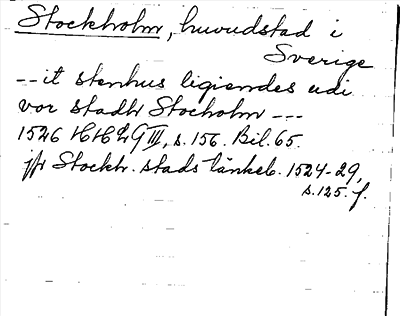 Stockholm, huvudstad i
Sverige
--it stenhus ligiendes udi
vor stadh Stocholm ---
1526 HH III, s. 156. Bil. 65.
jfr Stockh. stads tänkeb. 1524-29,
s. 125. f.